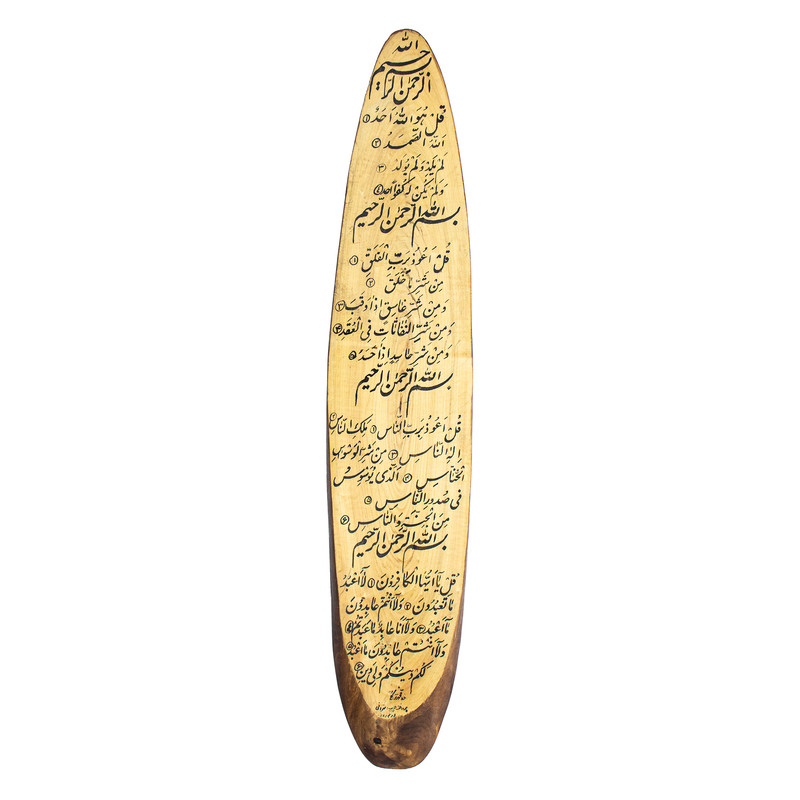 الله
الرَّحمن الرَّحیم
قُل هُوَ اللهُ اَحَدٌ ۱
اَللهُ الصَّمَدُ ۲
لَم یَلِد وَلَم یُولَد ۳
وَلَم یَکُن لَهُ کُفُواً اَحَد ۴
بسم الله الرَّحمن الرَّحیم
قُل اَعُوذُ بِرَبِّ الفَلَقِ ۱
مِن شَرِّ ما خَلَقَ ۲
وَمِن شَرِّ غاسِقٍ اِذا وَقَبَ ۳
وَمِن شَرِّ النَّفّاثاتِ فِی العُقَدِ ۴
وَمِن شَرِّ حاسِدٍ اِذا حَسَدَ ۵
بسم الله الرَّحمن الرَّحیم
قُل اَعُوذُ بِرَبِّ النّاسِ ۱ مَلِکِ النّاسِ ۲
اِلهِ النّاسِ ۳ مِن شَرِّ الوَسواسِ
الخَنّاسِ ۴ اَلَّذی یُوَسوِسُ
فی صُدورِ النّاسِ ۵
مِنَ الجِنَّةِ وَالنّاسِ ۶
بسم الله الرَّحمن الرَّحیم
قُل یا اَیُّهَا الکافِرُونَ ۱ لا اَعبُدُ
ما تَعبُدُونَ ۲ وَلا اَنتُم عابِدُونَ
ما اَعبُدُ ۳ وَلا اَنا عابِدٌ ما عَبَدتُم ۴
وَلا اَنتُم عابِدُونَ ما اَعبُدُ ۵
لَکُم دینُکُم وَلِیَ دینِ ۶